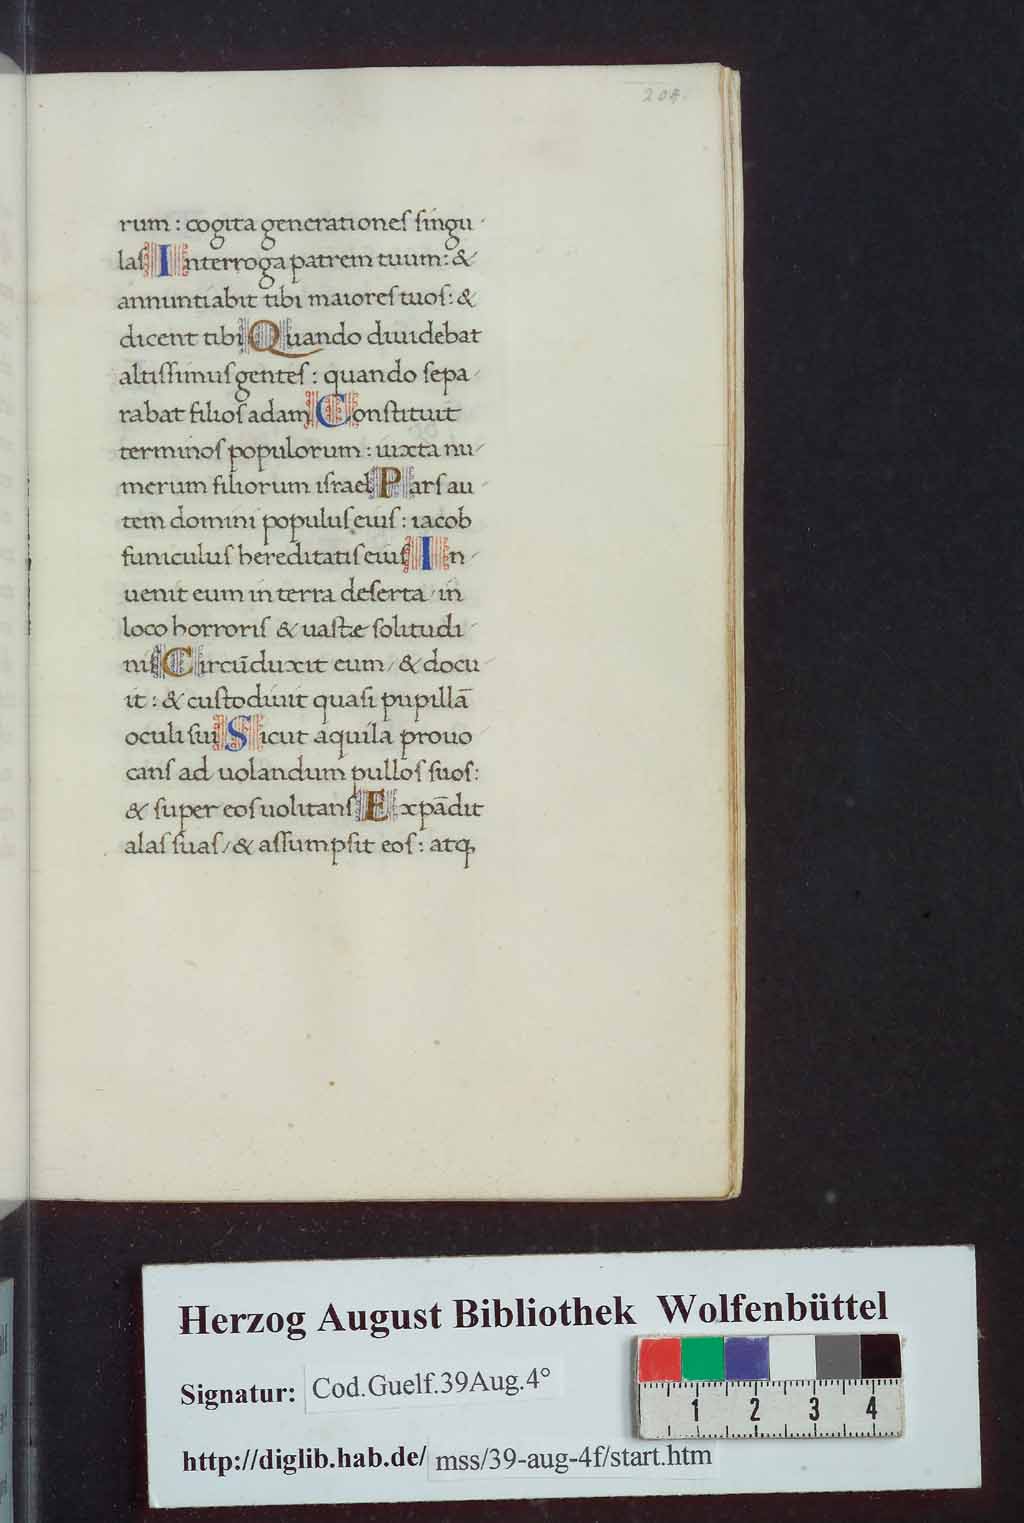 204.
rum : cogita generationes singu-
las Interroga patrem tuum: &
annuntiabit tibi maiores tuos: &
dicent tibi Quando diuidebat
altissimus gentes : quando sepa-
rabat filios adam Constituit
terminos populorum : iuxta nu-
merum filiorum israel Pars au-
tem domini populus eius : iacob
funiculus hereditatis eius In-
uenit eum in terra deserta / in
loco horroris & uastæ solitudi-
nis Circūduxit eum / & docu-
it : & custodiuit quasi pupillā
oculi sui Sicut aquila prouo-
cans ad uolandum pullos suos:
& super eos uolitans Expādit
alas suas / & assumpsit eos : atq,
Herzog August Bibliothek Wolfenbüttel
Signatur: Cod.Guelf.39Aug.4°
1 2 3 4
http://diglib.hab.de/ mss/39-aug-4f/start.htm